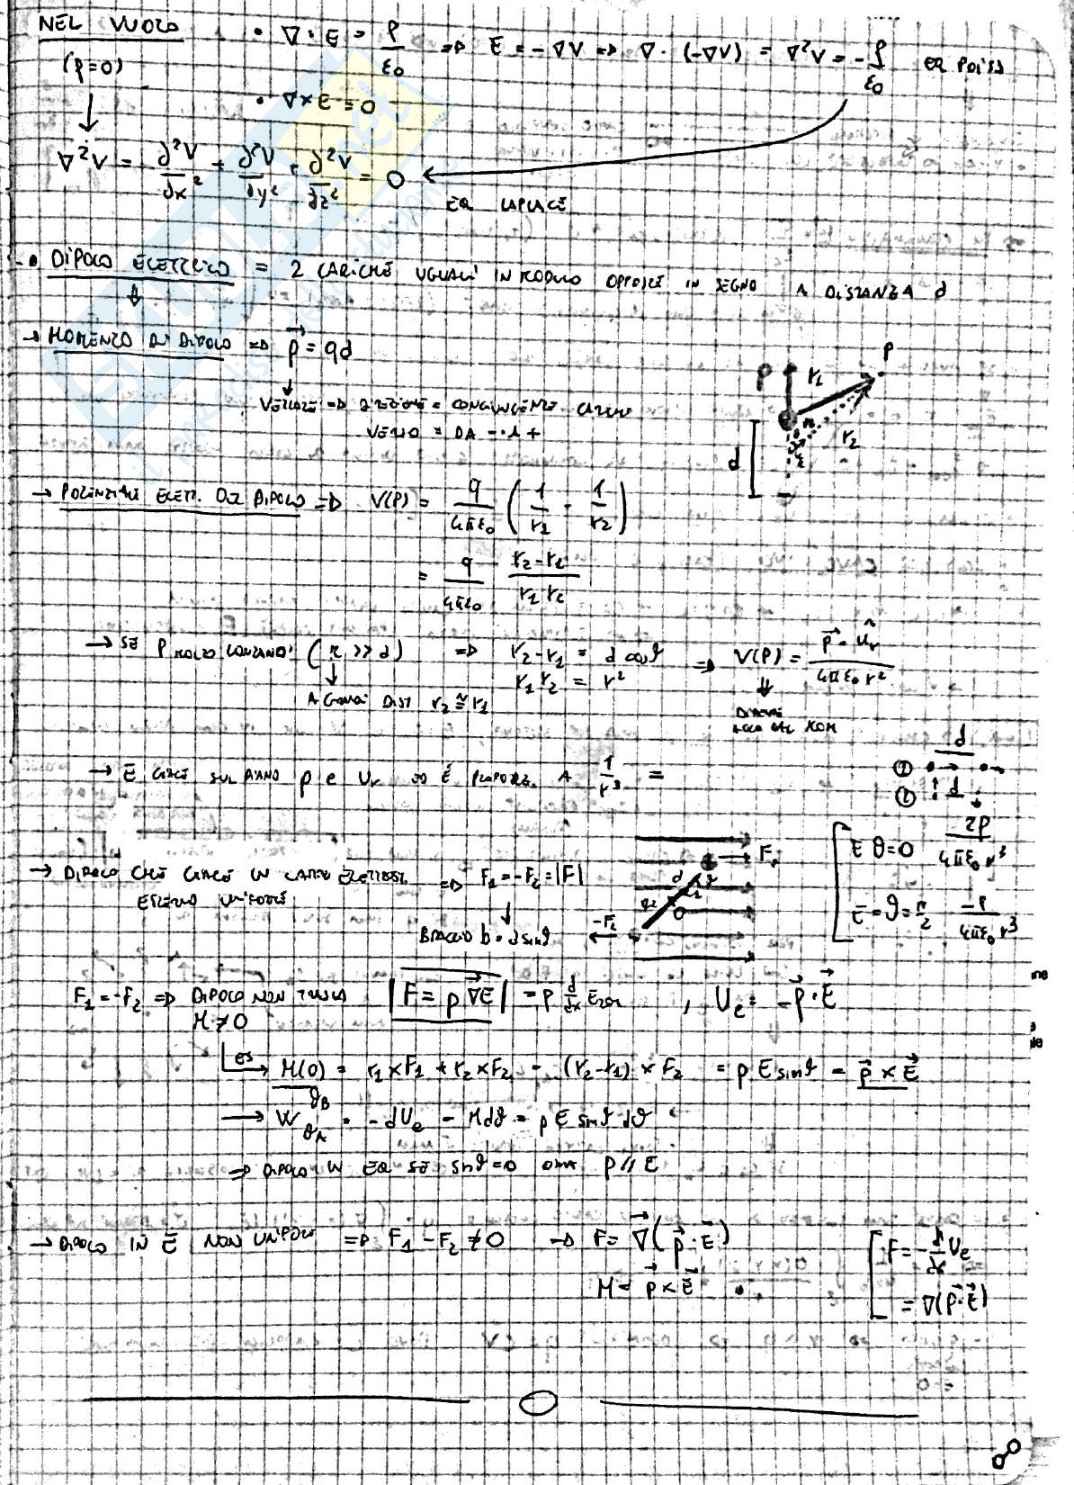 NEL VUOTO • ∇·E = ρ/ε0 ⇒ E = -∇V ⇒ ∇·(-∇V) = ∇²V = -ρ/ε0 EQ POISS
(ρ=0) • ∇×E = 0
∇²V = ∂²V/∂x² + ∂²V/∂y² + ∂²V/∂z² = 0 ← EQ LAPLACE
• DIPOLO ELETTRICO = 2 CARICHE UGUALI IN MODULO OPPOSTE IN SEGNO A DISTANZA d
→ MOMENTO DI DIPOLO ⇒ p⃗ = qd
VETTORE ⇒ DIREZIONE = CONGIUNGENTE CARICHE
VERSO = DA - A +
p r1 P
r2
d
→ POTENZIALE ELETT. DEL DIPOLO ⇒ V(P) = q/4πε0 (1/r1 - 1/r2)
= q/4πε0 r2-r1/r1r2
→ SE P MOLTO LONTANO (r >> d) ⇒ r2-r1 = d cosθ ⇒ V(P) = p⃗·ûr/4πε0 r²
r1r2 = r²
A GRANDI DIST r2 ≅ r1
→ E GIACE SUL PIANO p e ur ⇒ È PROPORZ. A 1/r³ =
d
① • → •
② ↑ d
[ E θ=0 2p/4πε0 r³
E = θ = π/2 -p/4πε0 r³
→ DIPOLO CHE GIACE IN CAMPO ELETTROS. ⇒ F1 = -F2 = |F|
ESTERNO UNIFORME
BRACCIO b = d sinθ
-F2 O d
F1 = -F2 ⇒ DIPOLO NON TRASLA |F = p ∇⃗E| = p d/dx E , Ue = -p⃗·E⃗
M ≠ 0
es → M(O) = r1×F1 + r2×F2 = (r2-r1) × F2 = p E sinθ = p⃗ × E⃗
→ W θB θA = -dUe = Mdθ = p E sinθ dθ
⇒ DIPOLO IN EQ SE sinθ=0 p // E
→ DIPOLO IN E NON UNIFORME ⇒ F1 - F2 ≠ 0 ⇒ F = ∇⃗(p⃗·E⃗)
M = p⃗ × E⃗
[ F = -d/dx Ue
= ∇(p⃗·E⃗)